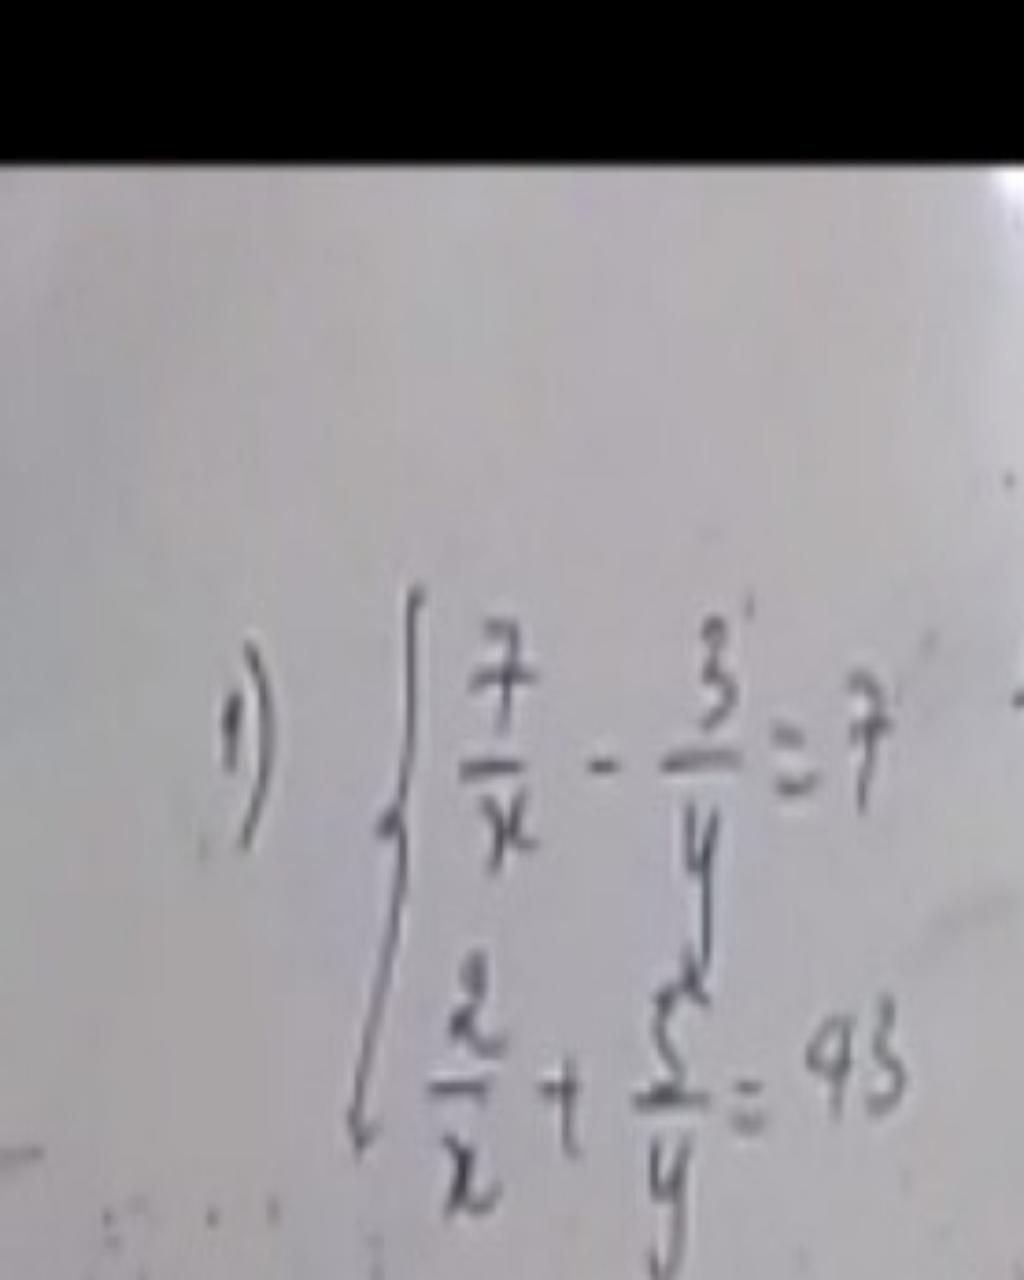 1) { 7/x - 3/y = 7
2/x + 5/y = 93